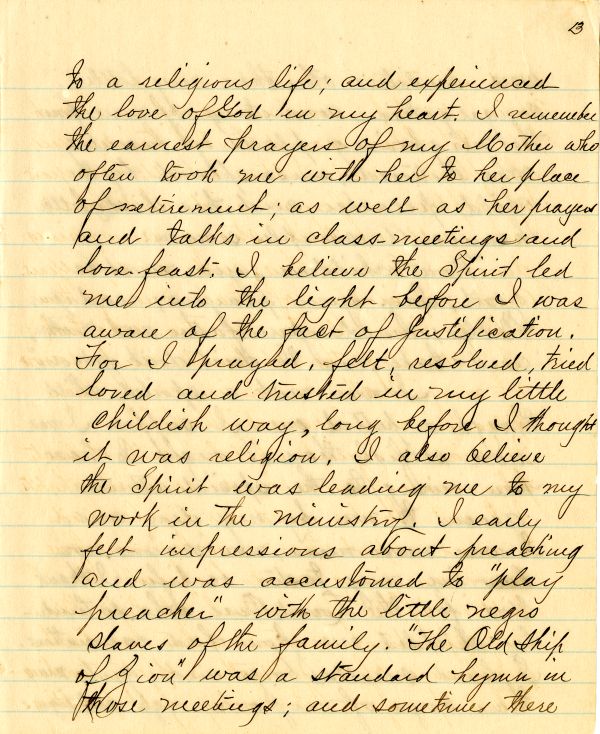 13
to a religious life; and experienced
the love of God in my heart. I remember
the earnest prayers of my Mother who
often took me with her to her place
of retirement; as well as her prayers
and talks in class-meetings and
love-feast. I believe the Spirit led
me into the light before I was
aware of the fact of Justification.
For I prayed, felt, resolved, tried
loved and trusted in my little
childish way, long before I thought
it was religion. I also believe
the Spirit was leading me to my
work in the ministry. I early
felt impressions about preaching
and was accustomed to "play
preacher" with the little negro
slaves of the family. "The Old Ship
of Zion" was a standard hymn in
those meetings; and sometimes there